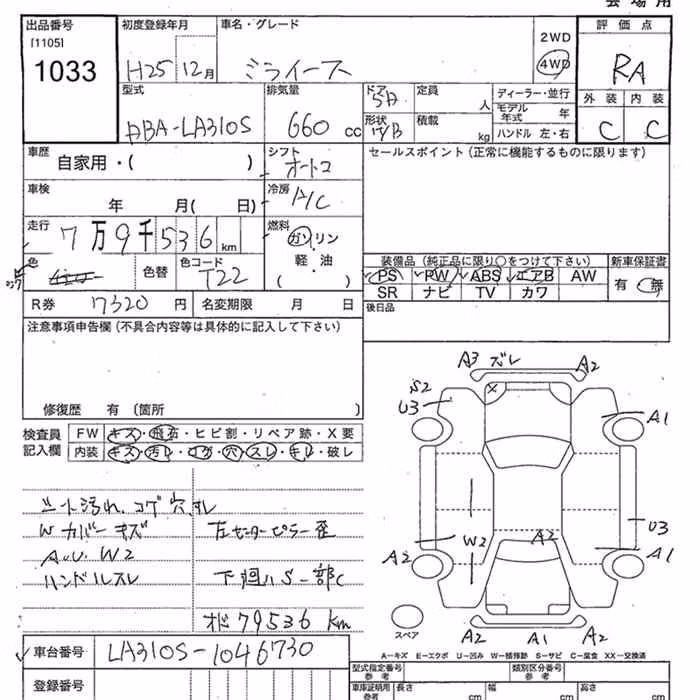 会場用
出品番号 初度登録年月 車名・グレード 2WD 評価点
[1105]
1033 H25 12月 ミライース 4WD RA
型式 排気量 ドア 5D 定員 人 ディーラー・並行 外装 内装
モデル年式 年
DBA-LA310S 660 cc 形状 積載 kg ハンドル 左・右 C C
車歴 シフト セールスポイント(正常に機能するものに限ります)
自家用・( ) オートマ
車検 冷房
年 月( 日) A/C
走行 燃料
7万9千536km ガソリン
軽・油
( )
色 色替 色コード T22
装備品(純正品に限り○をつけて下さい) 新車保証書
PS PW ABS エアB AW 有 無
SR ナビ TV カワ
R券 7320円 名変期限 月 日 後日品
注意事項申告欄(不具合内容等は具体的に記入して下さい)
修復歴 有 (箇所 )
検査員記入欄 FW キズ・飛石・ヒビ割・リペア跡・X要
内装 キズ・汚レ・コゲ・穴・スレ・キレ・破レ
シート汚れ、コゲ穴スレ
Wカバーキズ 左センターピラー歪
A.U. W2
ハンドルスレ 下廻りS一部C
79536 km
A3 ズレ A2
S2
U3 A1
U3
W2 A2
A2 A1
A2 A1 A2
スペア
A-キズ E-エクボ U-凹み W-補修跡 S-サビ C-腐食 XX-交換済
車台番号 LA310S-1046730
登録番号
型式指定番号 参考 類別区分番号 参考
車庫証明用 参考 長さ cm 幅 cm 高さ cm